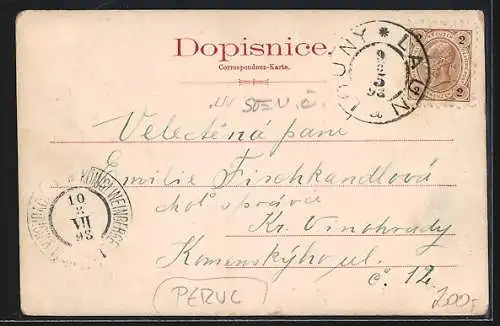 Dopisnice.
Correspondenz-Karte.
LOUNY * LAUN
98
2 2
Velectěná paní
Emilie Fischkandlová
choť správce
Kr. Vinohrady
Komenského ul.
č. 12.
KÖNIGL. WEINBERGE
10
VII
98
PERUC
700,-